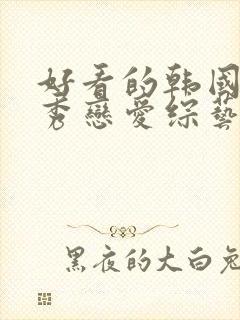 好看的韩国
秀戀愛综藝
黑夜的大白兔